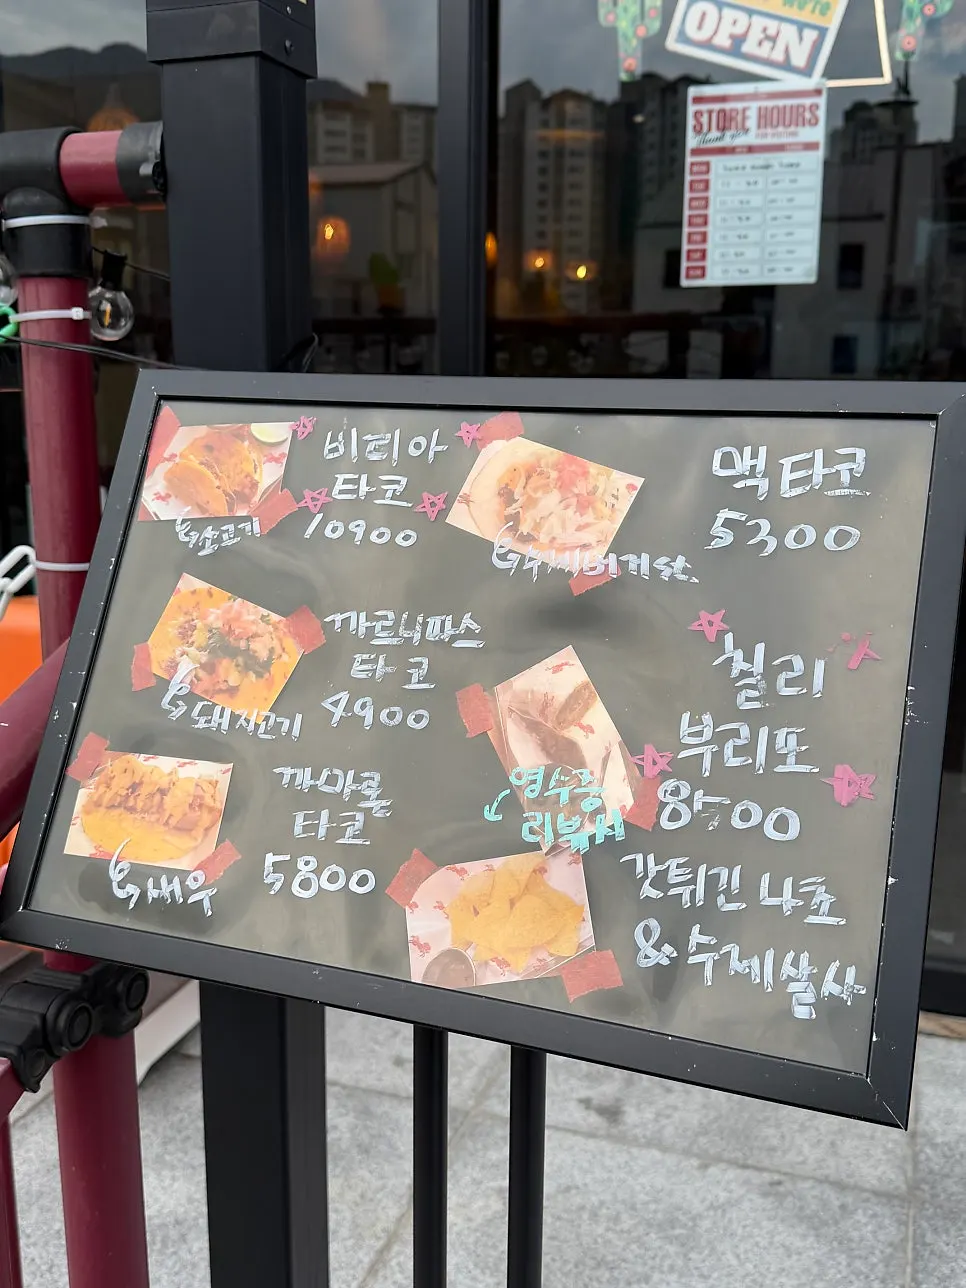 OPEN
STORE HOURS
Thank you
FOR VISITING
비리아
타코
10900
소고기
맥타코
5300
까르니따스
타코
4900
돼지고기
칠리
부리또
8500
까마론
타코
5800
새우
영수증
리뷰시
갓튀긴 나쵸
& 수제살사